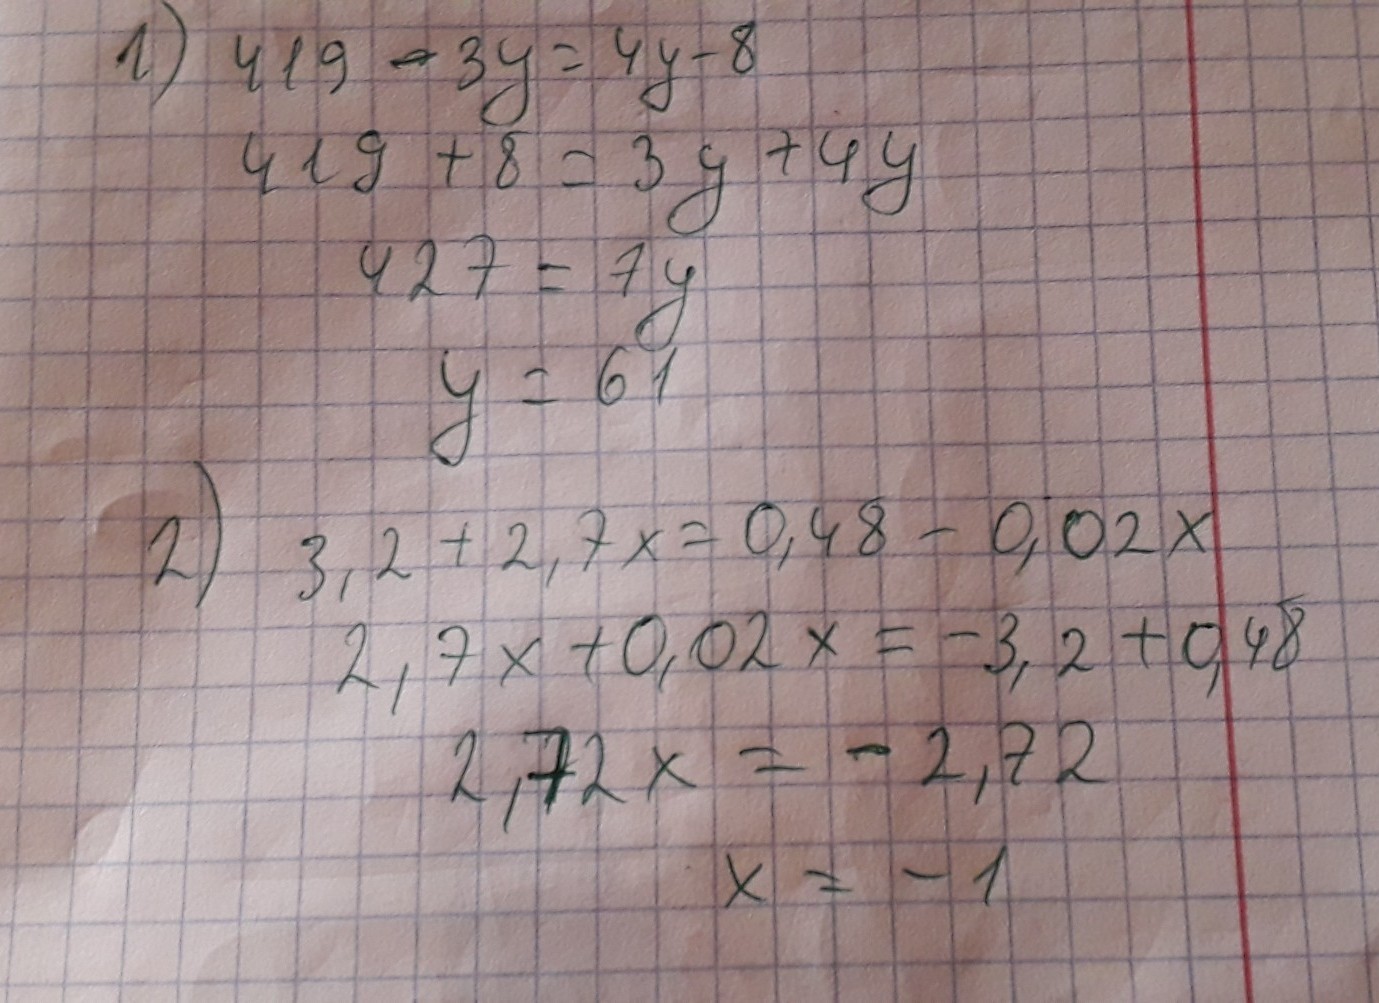 1) 419 - 3y = 4y - 8
419 + 8 = 3y + 4y
427 = 7y
y = 61
2) 3,2 + 2,7x = 0,48 - 0,02x
2,7x + 0,02x = -3,2 + 0,48
2,72x = -2,72
x = -1